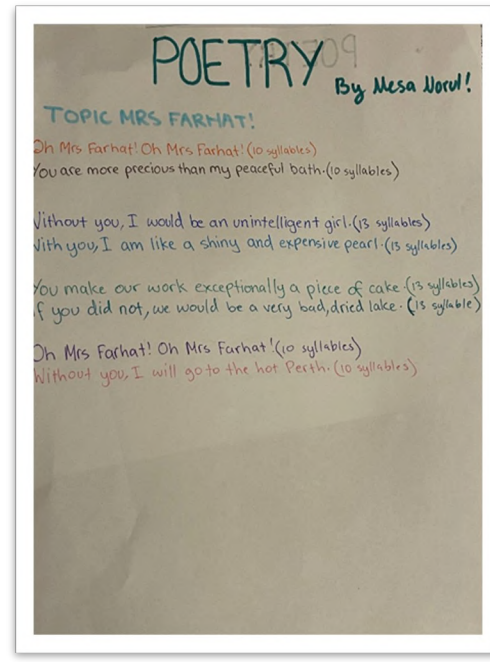 POETRY
By Mesa Norul!
TOPIC MRS FARHAT!
Oh Mrs Farhat! Oh Mrs Farhat! (10 syllables)
You are more precious than my peaceful bath. (10 syllables)
Without you, I would be an unintelligent girl. (13 syllables)
With you, I am like a shiny and expensive pearl. (13 syllables)
You make our work exceptionally a piece of cake. (13 syllables)
If you did not, we would be a very bad, dried lake. (13 syllable)
Oh Mrs Farhat! Oh Mrs Farhat! (10 syllables)
Without you, I will go to the hot Perth. (10 syllables)